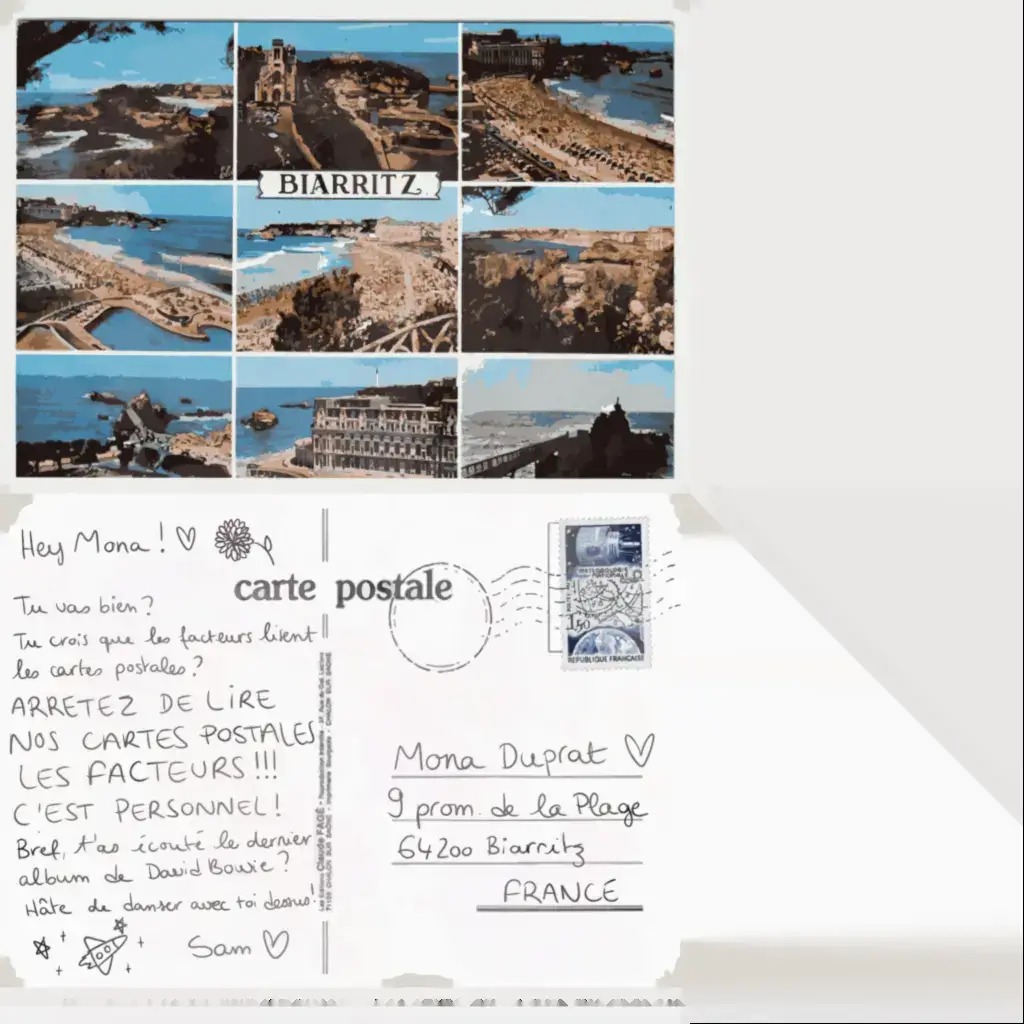 BIARRITZ
Hey Mona ! ♡
carte postale
Tu vas bien ?
Tu crois que les facteurs lisent
les cartes postales ?
ARRETEZ DE LIRE
NOS CARTES POSTALES
LES FACTEURS !!!
C'EST PERSONNEL !
Bref, t'as écouté le dernier
album de David Bowie ?
Hâte de danser avec toi dessus !
Sam ♡
Les Editions Claude FAGÉ
71100 CHALON SUR SAONE
METEOROLOGIE
NATIONALE
1,50
REPUBLIQUE FRANCAISE
Mona Duprat ♡
9 prom. de la Plage
64200 Biarritz
FRANCE